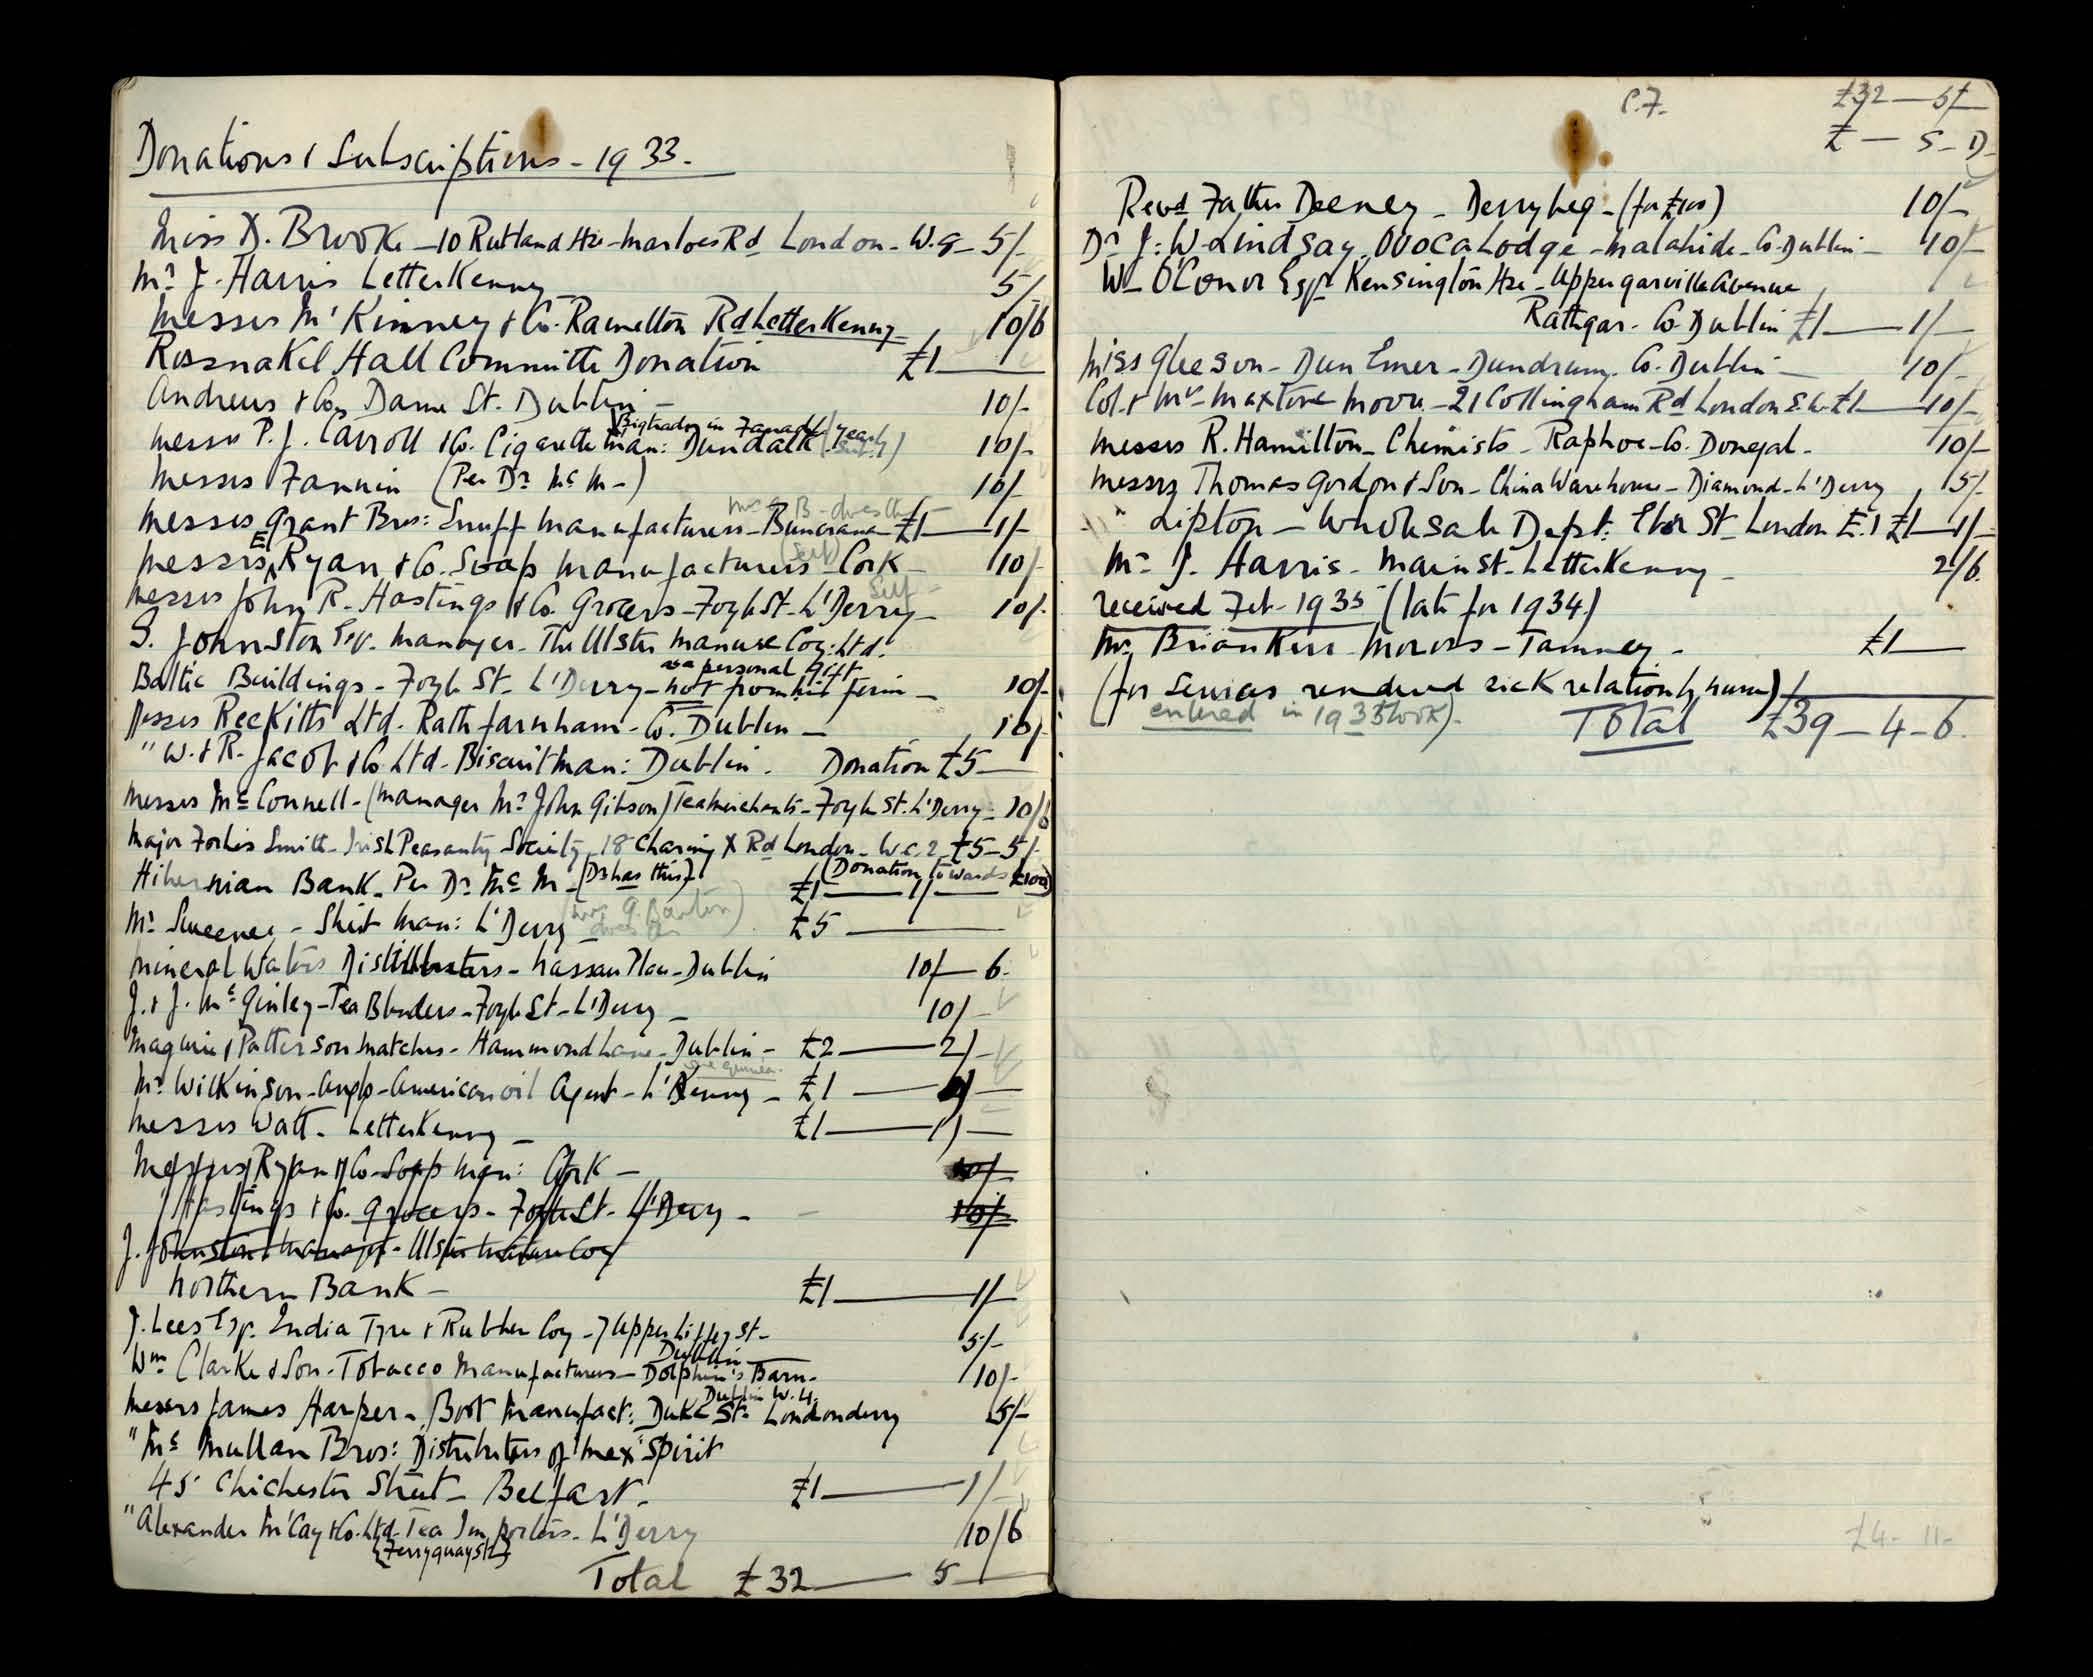 Donations & Subscriptions - 1933.
Miss D. Brooke - 10 Rutland Hse - Marloes Rd London - W.8 - 5/-
Mr J. Harris Letterkenny - 5/-
Messrs McKinney & Co. Ramelton Rd Letterkenny - 10/6
Rossnakil Hall Committe Donation £1 —
Andrews & Coy Dame St. Dublin - 10/-
Big trade in Fanad yearly
Messrs P.J. Carroll & Co. Cigarette Man: Dundalk 10/-
Messrs Fannin (Per Dr McM-) 10/-
Mrs B- does this
Messrs Grant Bros: Snuff Manufacturers - Buncrana - £1 — 1/-
(Self)
Messrs E Ryan & Co. Soap Manufacturers - Cork - 10/-
Self -
Messrs John R. Hastings & Co. Grocers - Foyle St - L'Derry - 10/-
S. Johnston Esq. Manager - The Ulster Manure Coy: Ltd.
as a personal gift
Baltic Buildings - Foyle St - L'Derry - not from his firm - 10/-
Messrs Reckitts Ltd. Rathfarnham - Co. Dublin - 10/-
" W. & R. Jacob & Co Ltd - Biscuit Man: Dublin. Donation £5 —
Messrs McConnell - (Manager Mr John Gibson) Tea Merchants - Foyle St. L'Derry - 10/6
Major Forbes Smith - Irish Peasantry Society, 18 Charing X Rd London - W.C.2 - £5 - 5/-
Hibernian Bank - Per Dr McM - (Dr has this) £1 — 1/- (Donation towards £100)
Mr Sweeney - Shirt Man: L'Derry - (Mrs G. Barton does this) £5 —
Mineral Waters Distributers - Nassau Place - Dublin 10/- 6.
J. & J. McGinley - Tea Blenders - Foyle St - L'Derry - 10/-
Maguire & Patterson Matches - Hammond Lane - Dublin - £2 — 2/-
one guinea -
Mr Wilkinson - Anglo-American oil Agent - L'Kenny - £1 — —
Messrs Watt - Letterkenny - £1 — 1/-
Messrs Ryan & Co - Soap Man: Cork - 10/-
Hastings & Co. Grocers - Foyle St - L'Derry - 10/-
J. Johnston Manager - Ulster Manure Coy
Northern Bank - £1 — 1/-
J. Lees Esq. India Tyre & Rubber Coy - 7 Upper Liffey St -
Dublin 5/-
Wm Clarke & Son - Tobacco Manufacturers - Dolphin's Barn - 10/-
Dublin W.4.
Messrs James Harper - Boot Manufact: Duke St - Londonderry 5/-
" McMullan Bros: Distributers of "Mex" Spirit
45 Chichester Street - Belfast - £1 — 1/-
" Alexander McCay & Co. Ltd - Tea Importers - L'Derry 10/6
{Ferryquay St}
Total £32 — 5 —
P.7. £32 — 5/-
£ — S - D -
Revd Father Deeney - Derrybeg - (for £100) 10/-
Dr J. W. Lindsay, Ovoca Lodge - Malahide - Co. Dublin - 10/-
Wm O'Conor Esqr Kensington Hse - Upper Garville Avenue
Rathgar - Co. Dublin £1 — 1/-
Miss Gleeson - Dun Emer - Dundrum - Co. Dublin - 10/-
Col. & Mrs Maxtone Moore - 21 Collingham Rd London S.W. £1 — 10/-
Messrs R. Hamilton - Chemists - Raphoe - Co. Donegal - 10/-
Messrs Thomas Gordon & Son - China Warehouse - Diamond - L'Derry 5/-
" Lipton - Wholesale Dept: St London E.1 £1 — 1/-
Mr J. Harris - Main St - Letterkenny - 2/6.
received Feb - 1935 (late for 1934)
Mr Brian Kerr Moross - Tamney - £1 —
(for services rendered sick relation by nurse)
entered in 1935 book).
Total £39 - 4 - 6.
£4 - 11 -